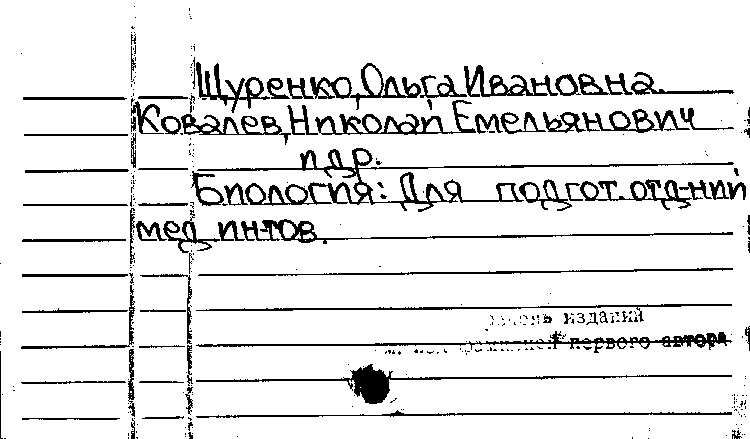 Щуренко, Ольга Ивановна.
Ковалев, Николай Емельянович
и др.
Биология: Для подгот. отд-ний
мед. ин-тов.
изданий
первого автора